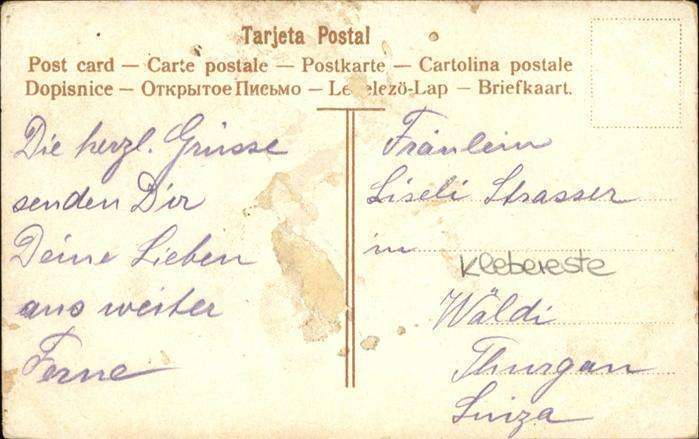 Tarjeta Postal
Post card — Carte postale — Postkarte — Cartolina postale
Dopisnice — Открытое Письмо — Levelező-Lap — Briefkaart.
Die herzl. Grüsse
senden Dir
Deine Lieben
aus weiter
Ferne
Fräulein
Liseli Strasser
in
Klebereste
Wäldi
Thurgau
Suiza